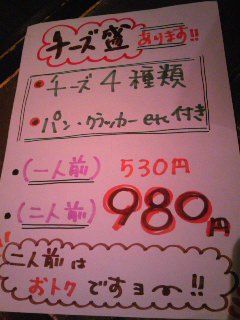 チーズ盛 あります!!
• チーズ4種類
• パン・クラッカー etc 付き
• (一人前) 530円
• (二人前) 980円
二人前は
おトクですョー!!